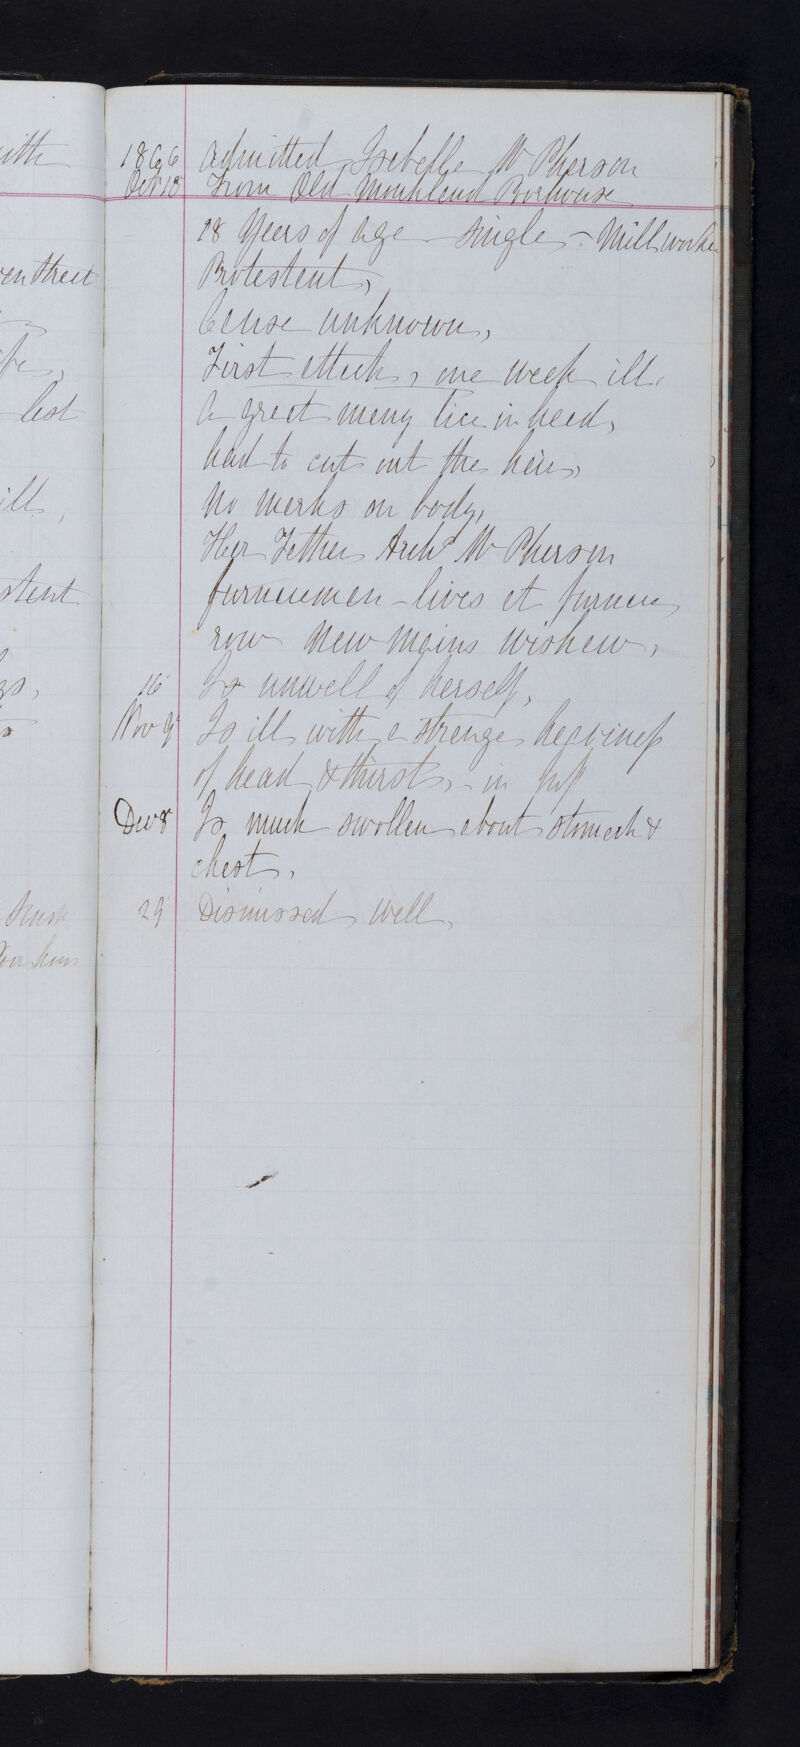 ith
en Street
fe,
last
ill,
stant
gs,
1866 Admitted Isabella McPherson
Oct 15 From Old Monkland Poorhouse
18 Years of age – Single – Mill worker
Protestant,
Cause unknown,
First attack, one week ill,
A great many lice in head,
had to cut out the hair,
No marks on body,
Her Father Archd McPherson
furnaceman – lives at furnace
row New Mains Wishaw,
16 Is unwell of herself,
Nov 9 Is ill with a strange heaviness
of head & thirst, – in
Dec 8 Is much swollen about stomach &
chest,
29 Dismissed well,